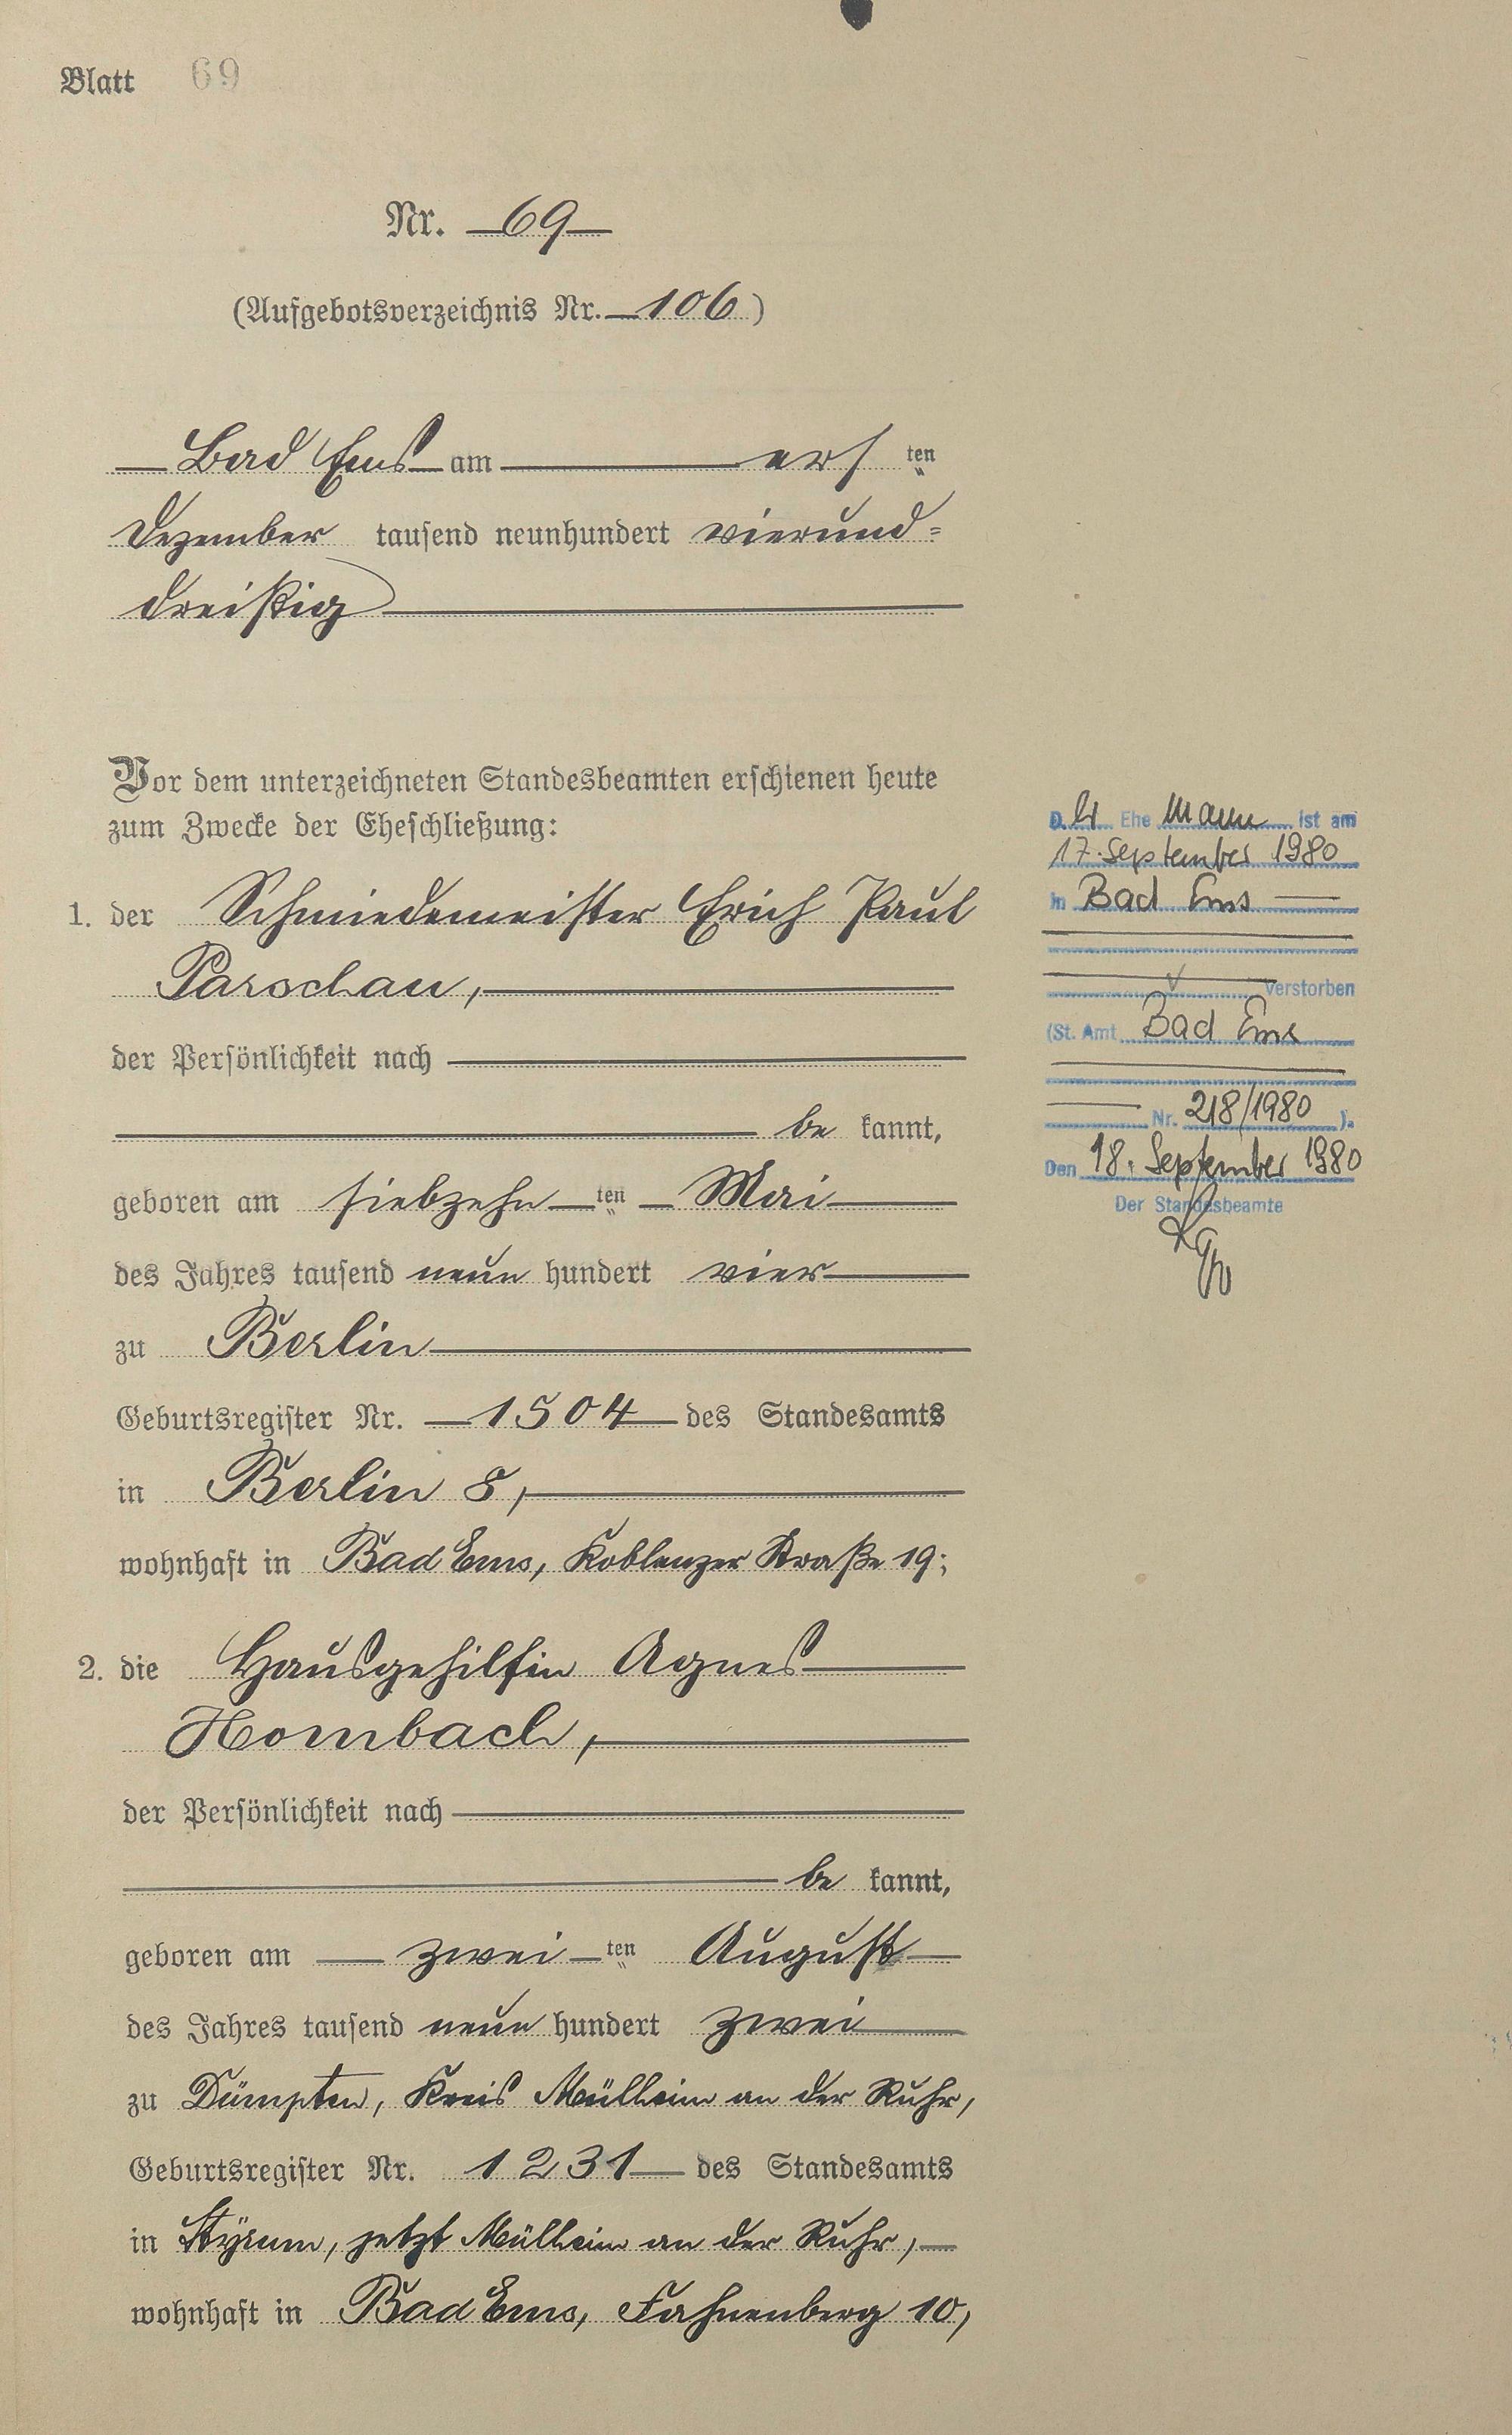 Blatt 69
Nr. 69
(Aufgebotsverzeichnis Nr. 106)
Bad Ems am ersten
Dezember tausend neunhundert vierund=
dreißig
Vor dem unterzeichneten Standesbeamten erschienen heute
zum Zwecke der Eheschließung:
1. der Schmiedemeister Erich Paul
Parschau,
der Persönlichkeit nach
be kannt,
geboren am siebzehn ten Mai
des Jahres tausend neun hundert vier
zu Berlin
Geburtsregister Nr. 1504 des Standesamts
in Berlin 8,
wohnhaft in Bad Ems, Koblenzer Straße 19;
2. die Hausgehilfin Agnes
Hombach,
der Persönlichkeit nach
be kannt,
geboren am zwei ten August
des Jahres tausend neun hundert zwei
zu Dümpten, Kreis Mülheim an der Ruhr,
Geburtsregister Nr. 1231 des Standesamts
in Styrum, jetzt Mülheim an der Ruhr,
wohnhaft in Bad Ems, Fahnenberg 10,
D. er Ehe Mann ist am
17. September 1980
in Bad Ems
verstorben
(St. Amt Bad Ems
Nr. 218/1980 ).
Den 18. September 1980
Der Standesbeamte